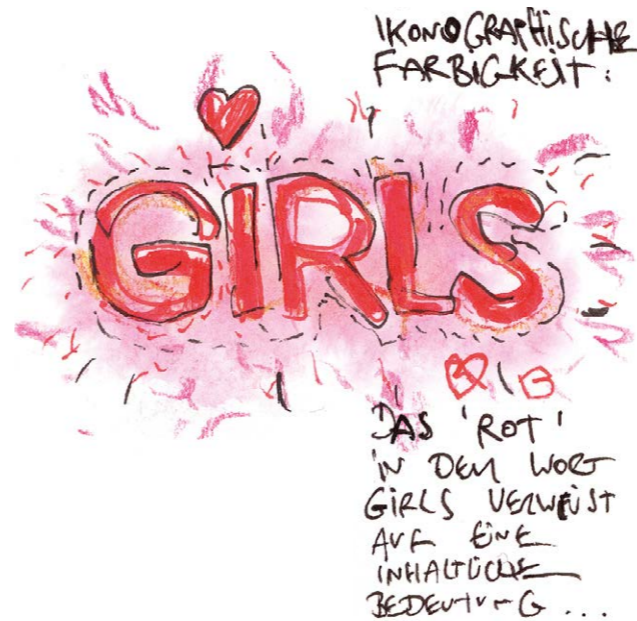 IKONOGRAPHISCHE
FARBIGKEIT:
GIRLS
DAS 'ROT'
IN DEM WORT
GIRLS VERWEIST
AUF EINE
INHALTLICHE
BEDEUTUNG...